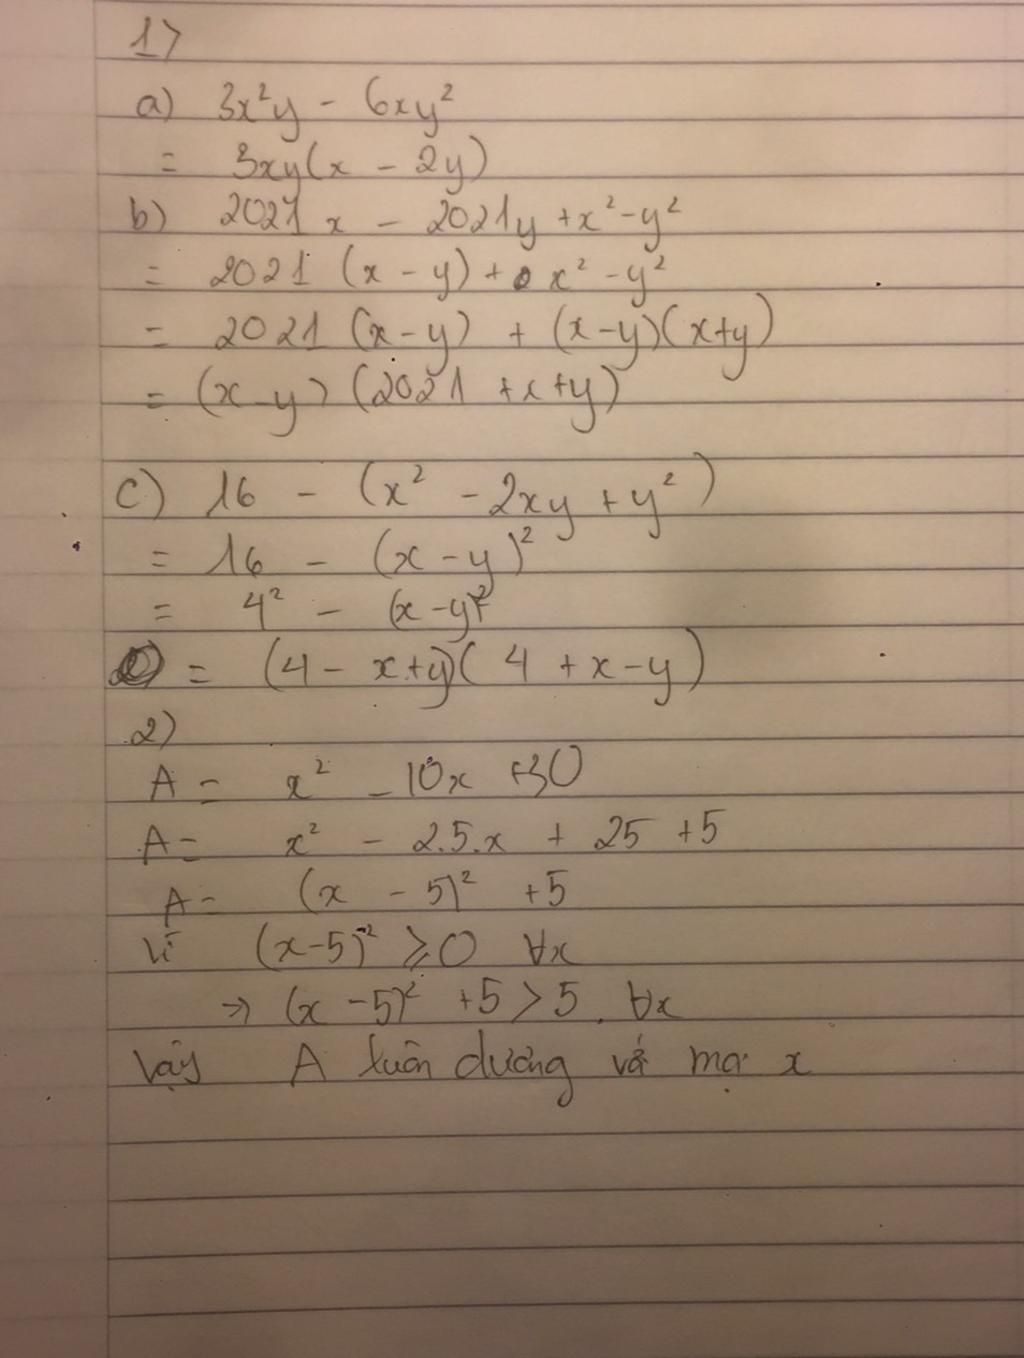 1>
a) 3x²y - 6xy²
= 3xy(x - 2y)
b) 2021x - 2021y + x² - y²
= 2021 (x - y) + x² - y²
= 2021 (x - y) + (x - y)(x + y)
= (x - y) (2021 + x + y)
c) 16 - (x² - 2xy + y²)
= 16 - (x - y)²
= 4² - (x - y)²
= (4 - x + y)(4 + x - y)
2)
A = x² - 10x + 30
A = x² - 2.5.x + 25 + 5
A = (x - 5)² + 5
Vì (x - 5)² ≥ 0 ∀x
⇒ (x - 5)² + 5 > 5 . ∀x
Vậy A luôn dương vớ mọi x